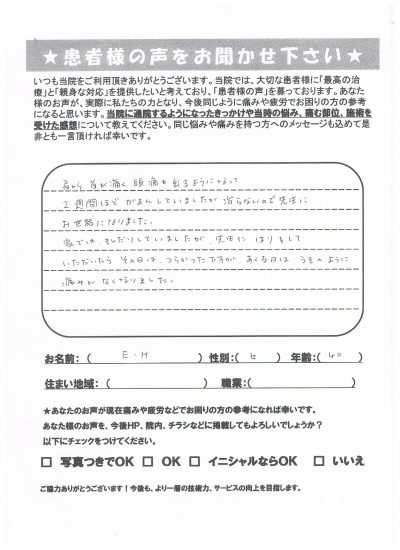 ★患者様の声をお聞かせ下さい★
いつも当院をご利用頂きありがとうございます。当院では、大切な患者様に「最高の治
療」と「親身な対応」を提供したいと考えており、「患者様の声」を募っております。あなた
様のお声が、実際に私たちの力となり、今後同じように痛みや疲労でお困りの方の参考
になると思います。当院に通院するようになったきっかけや当時の悩み、痛む部位、施術を
受けた感想について教えてください。同じ悩みや痛みを持つ方へのメッセージも込めて是
非とも一言頂ければ幸いです。
首が痛く 頭痛も出るようになって
2週間ほど がまんしていましたが 治らないので先生に
お世話になりました。
家では、もんだりしていましたが、先生に はりをして
いただいたら その日は、つらかったですが、あくる日は うそのように
痛みが なくなりました。
お名前：（ E．H ） 性別：（ 女 ） 年齢：（ 40 ）
住まい地域：（ ） 職業：（ ）
★あなたのお声が現在痛みや疲労などでお困りの方の参考になれば幸いです。
あなた様のお声を、今後HP、院内、チラシなどに掲載してもよろしいでしょうか？
以下にチェックをつけてください。
□ 写真つきでOK □ OK □ イニシャルならOK □ いいえ
ご協力ありがとうございます！今後も、より一層の技術力、サービスの向上を目指します。